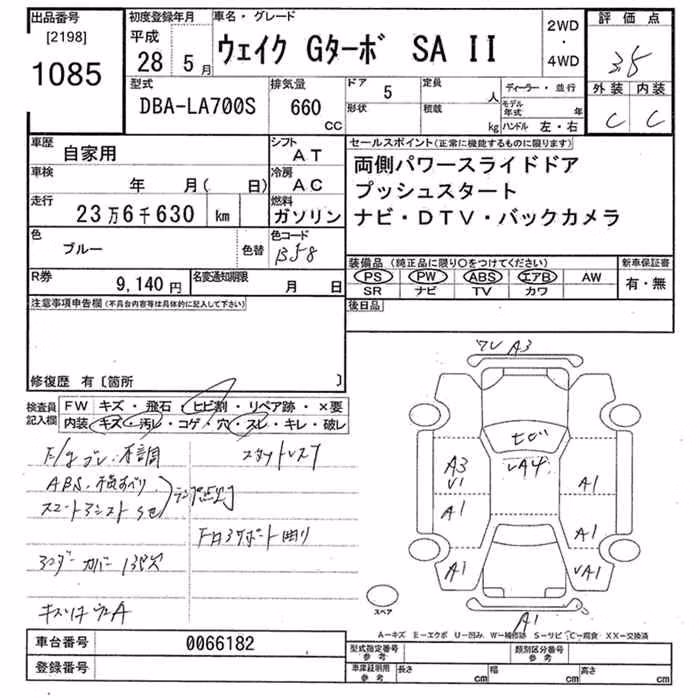 出品番号 初度登録年月 車名・グレード 評価点
[2198] 平成 2WD
1085 28 5月 ウェイク Gターボ SA II ・ 3.5
4WD
型式 排気量 ドア 5 定員 人 ディーラー・並行 外装 内装
DBA-LA700S 660 CC 形状 積載 kg モデル年式 年 C C
ハンドル 左・右
車歴 自家用 シフト AT セールスポイント(正常に機能するものに限ります)
車検 年 月( 日) 冷房 AC 両側パワースライドドア
走行 23万6千630 km 燃料 ガソリン プッシュスタート
ナビ・DTV・バックカメラ
色 ブルー 色替 色コード B58
装備品 (純正品に限り○をつけてください) 新車保証書
R券 9,140円 名変通知期限 月 日 PS PW ABS エアB AW 有・無
SR ナビ TV カワ
注意事項申告欄(不具合内容等は具体的に記入して下さい) 後日品
修復歴 有〔箇所 〕
ワレ A3
検査員記入欄 FW キズ・飛石・ヒビ割・リペア跡・×要
内装 キズ・汚レ・コゲ・穴・スレ・キレ・破レ
ABS
A3 VA4 A1
V1
A1 A1
A1 VA1
スペア A1
A−キズ E−エクボ U−凹み W−補修跡 S−サビ C−腐食 XX−交換済
車台番号 0066182 型式指定番号 参考 類別区分番号 参考
登録番号 車庫証明用 参考 長さ cm 幅 cm 高さ cm